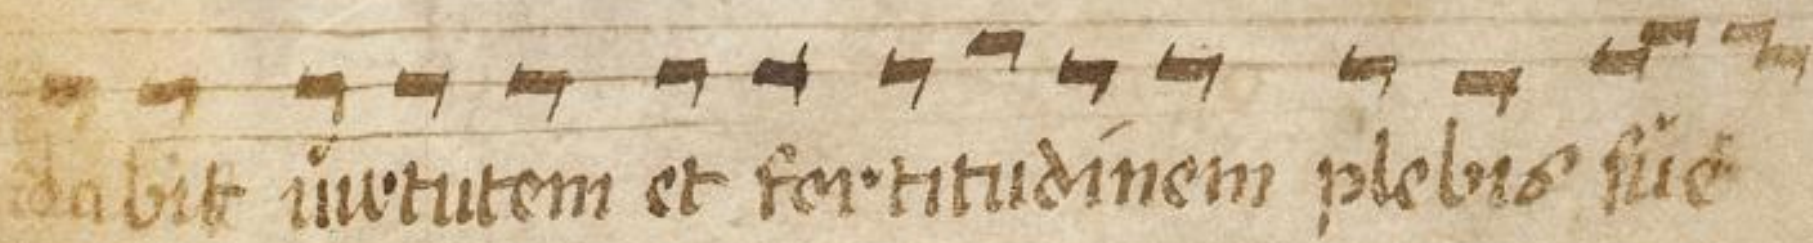 dabit uirtutem et fortitudinem plebis sue